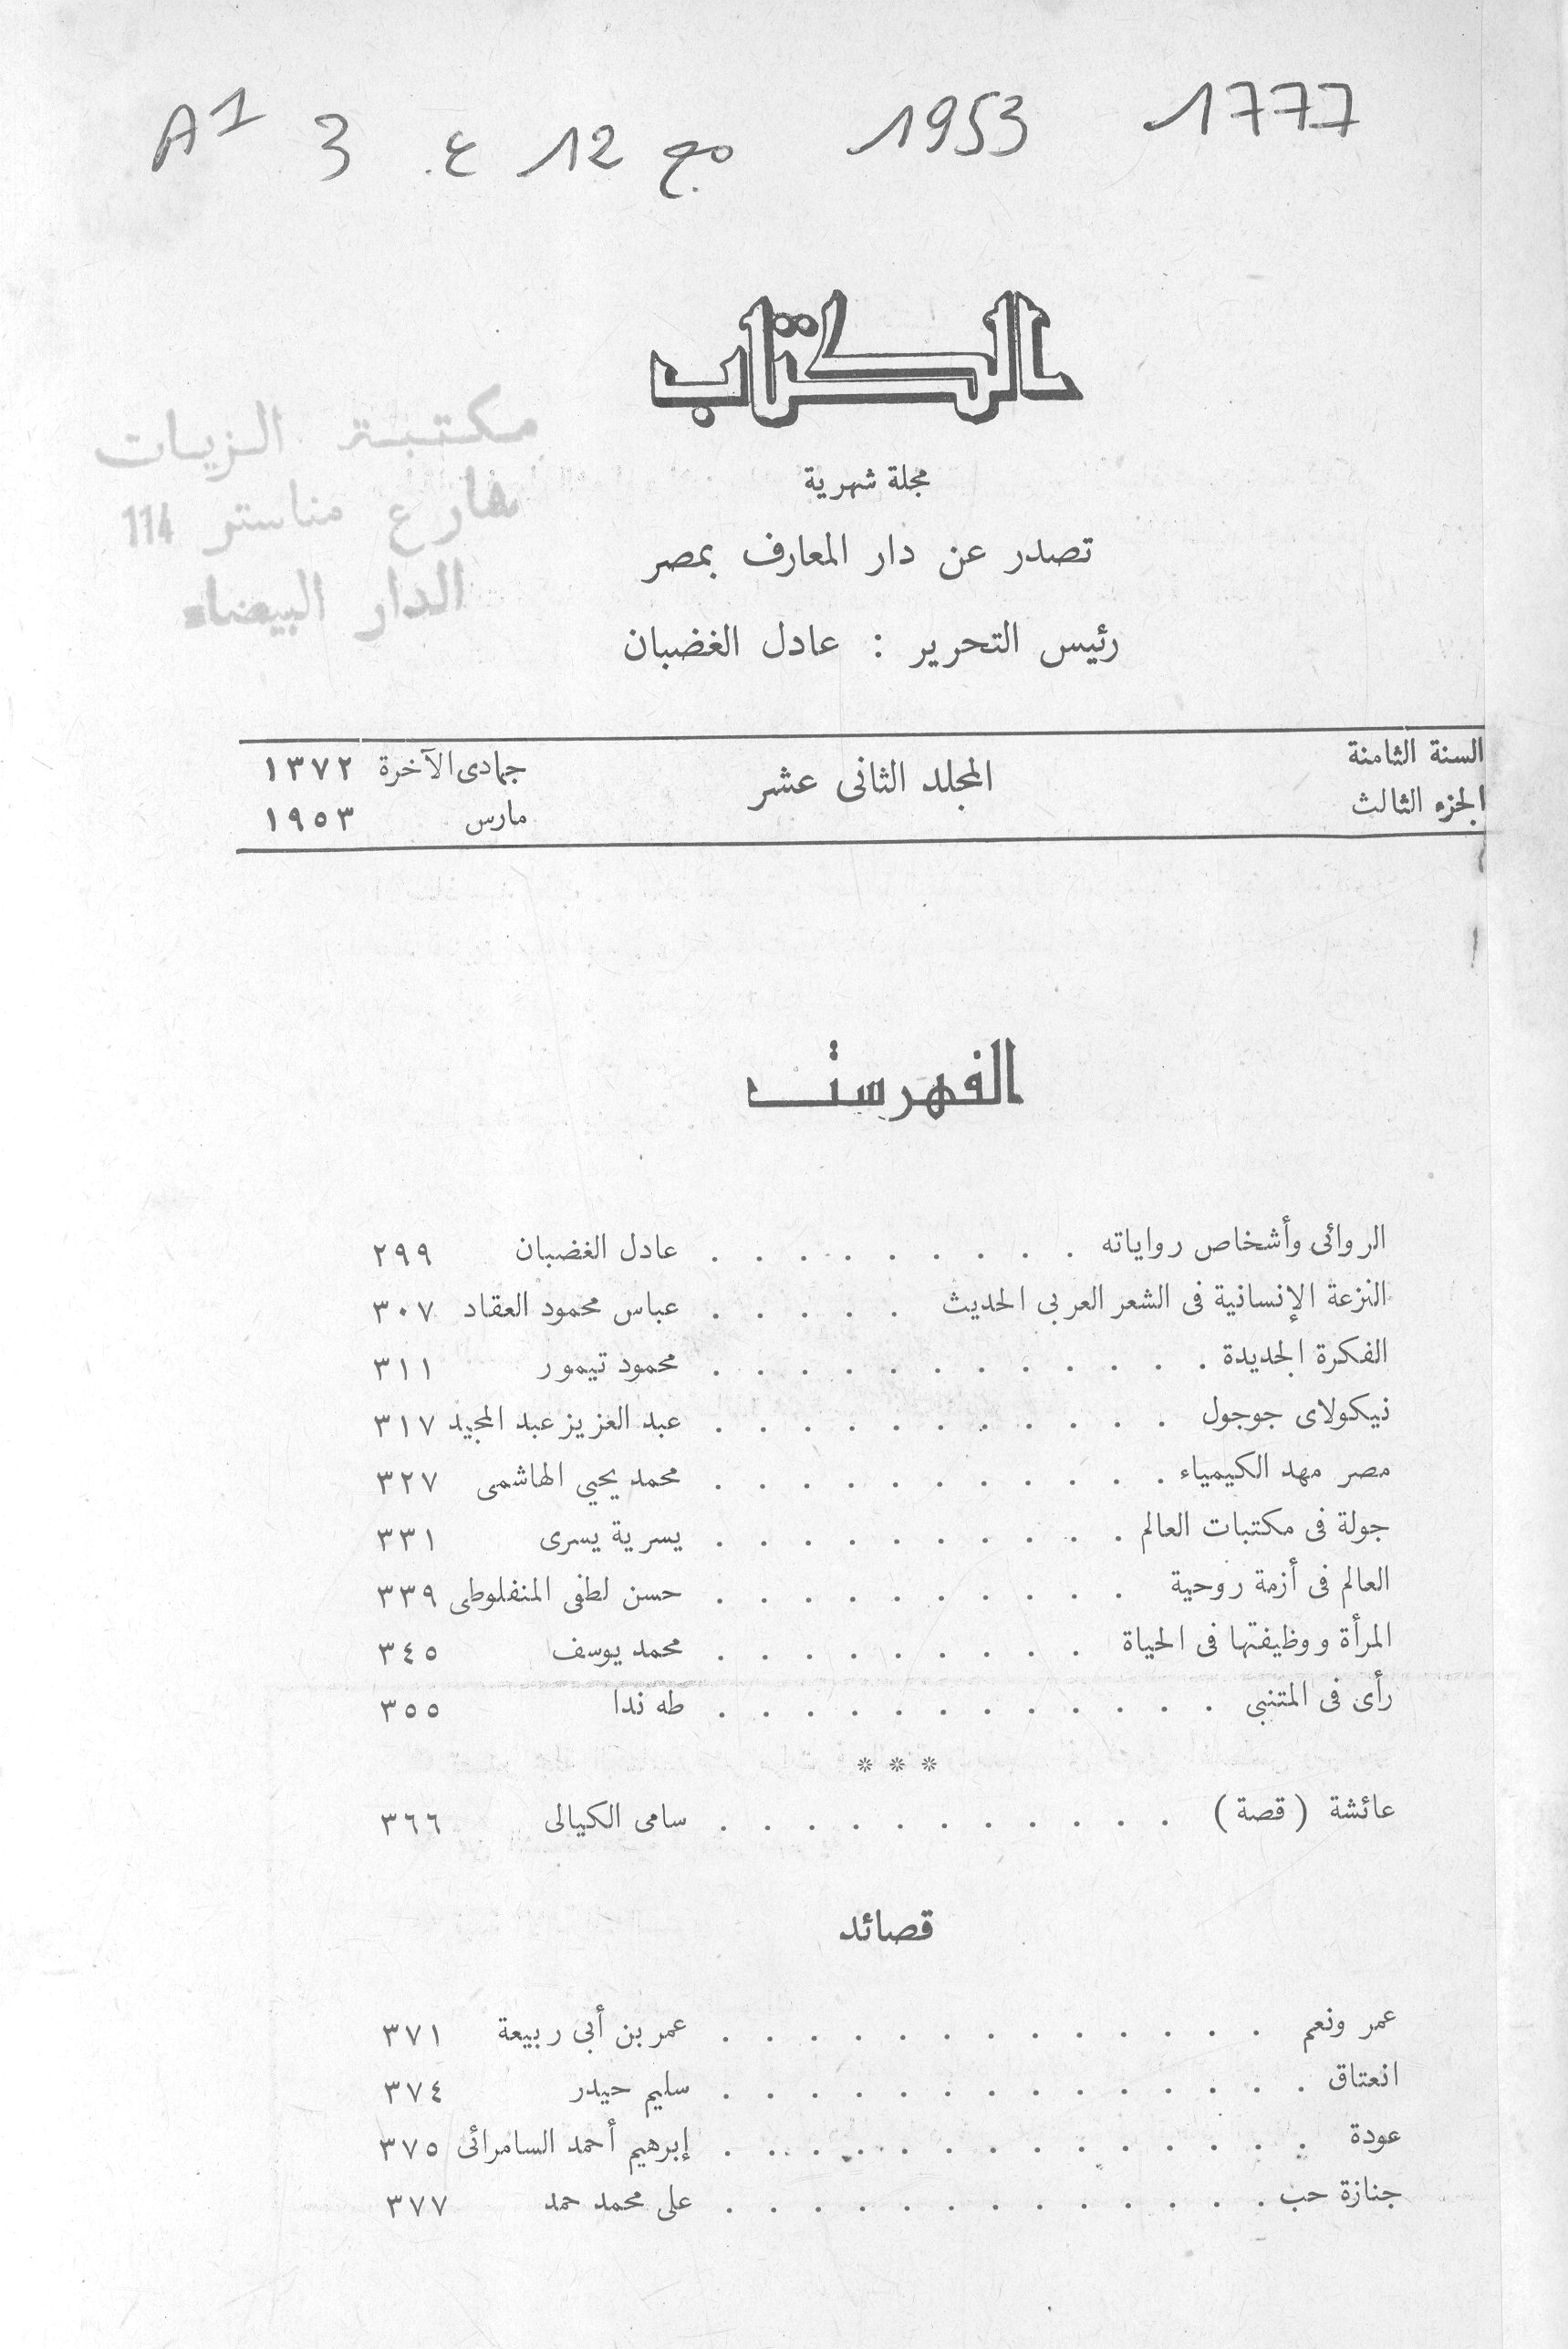 1777 1953 مج 12 ع. 3 A1
الكتاب
مكتبة الزيات
شارع مناستر 114
الدار البيضاء
مجلة شهرية
تصدر عن دار المعارف بمصر
رئيس التحرير : عادل الغضبان
السنة الثامنة
الجزء الثالث
المجلد الثانى عشر
جمادى الآخرة ١٣٧٢
مارس ١٩٥٣
الفهرست
الروائى وأشخاص رواياته . . . . . . . . . عادل الغضبان ٢٩٩
النزعة الإنسانية فى الشعر العربى الحديث . . . . . عباس محمود العقاد ٣٠٧
الفكرة الجديدة . . . . . . . . . . . . محمود تيمور ٣١١
نيكولاى جوجول . . . . . . . . . . . عبد العزيز عبد المجيد ٣١٧
مصر مهد الكيمياء . . . . . . . . . . . محمد يحيى الهاشمى ٣٢٧
جولة فى مكتبات العالم . . . . . . . . . . يسرية يسرى ٣٣١
العالم فى أزمة روحية . . . . . . . . . . حسن لطفى المنفلوطى ٣٣٩
المرأة ووظيفتها فى الحياة . . . . . . . . . محمد يوسف ٣٤٥
رأى فى المتنبى . . . . . . . . . . . . طه ندا ٣٥٥
* * *
عائشة ( قصة ) . . . . . . . . . . . سامى الكيالى ٣٦٦
قصائد
عمر ونعم . . . . . . . . . . . . . عمر بن أبى ربيعة ٣٧١
انعتاق . . . . . . . . . . . . . . سليم حيدر ٣٧٤
عودة . . . . . . . . . . . . . . إبرهيم أحمد السامرائى ٣٧٥
جنازة حب . . . . . . . . . . . . . على محمد حمد ٣٧٧